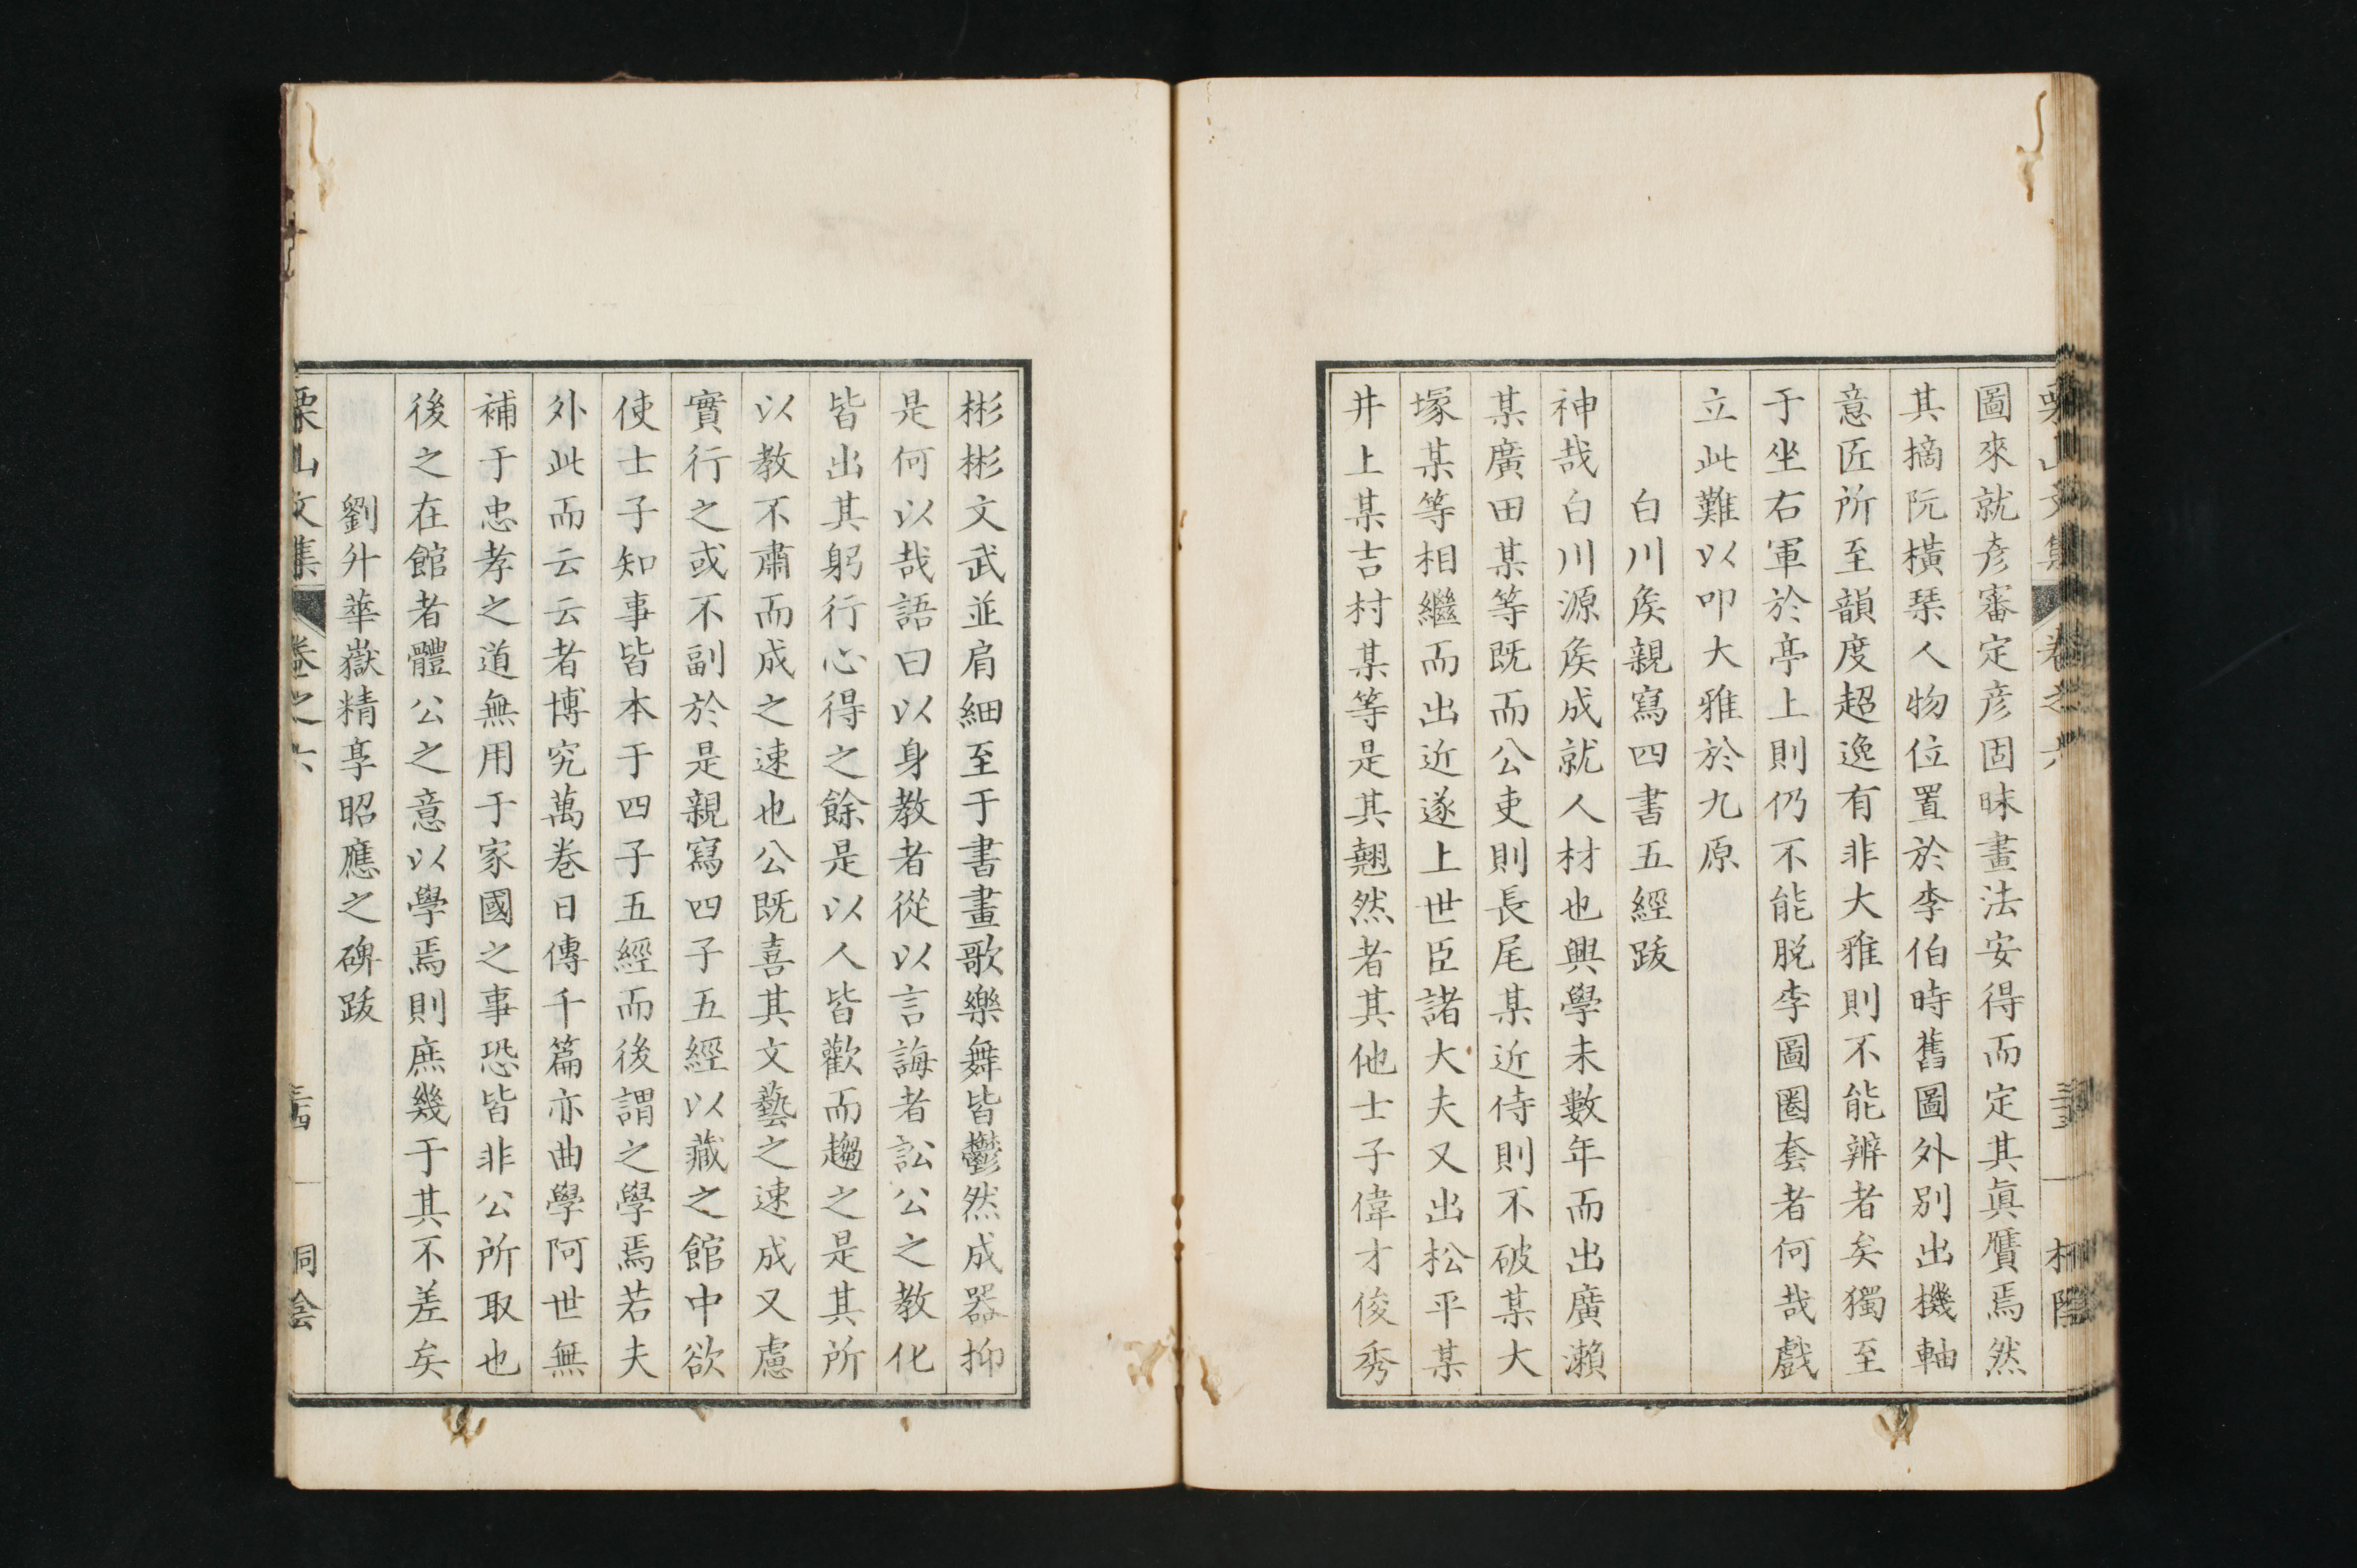 圖來就彥審定彥固昧畫法安得而定其眞贋焉然
其摘阮橫琴人物位置於李伯時舊圖外別出機軸
意匠所至韻度超逸有非大雅則不能辨者矣獨至
于坐右軍於亭上則仍不能脫李圖圈套者何哉戲
立此難以叩大雅於九原
白川矦親寫四書五經跋
神哉白川源矦成就人材也興學未數年而出廣瀨
某廣田某等既而公吏則長尾某近侍則不破某大
塚某等相繼而出近遂上世臣諸大夫又出松平某
井上某吉村某等是其翹然者其他士子偉才俊秀
彬彬文武並肩細至于書畫歌樂舞皆鬱然成器抑
是何以哉語曰以身教者從以言誨者訟公之教化
皆出其躬行心得之餘是以人皆歡而趨之是其所
以教不肅而成之速也公既喜其文藝之速成又慮
實行之或不副於是親寫四子五經以藏之館中欲
使士子知事皆本于四子五經而後謂之學焉若夫
外此而云云者博究萬卷日傳千篇亦曲學阿世無
補于忠孝之道無用于家國之事恐皆非公所取也
後之在館者體公之意以學焉則庶幾于其不差矣
劉升華嶽精享昭應之碑跋
栗山文集 卷之六